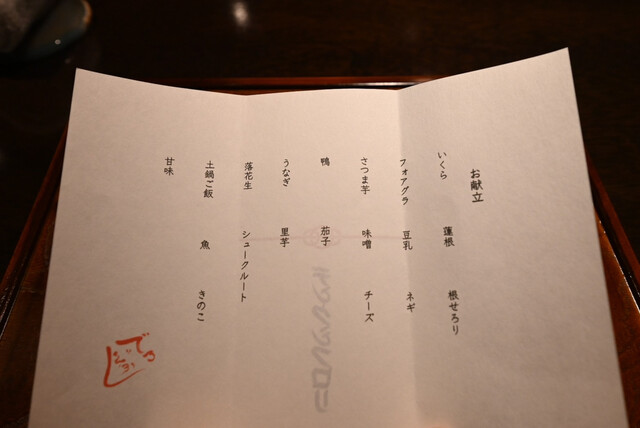 お献立
いくら 蓮根 根せろり
フォアグラ 豆乳 ネギ
さつま芋 味噌 チーズ
鴨 茄子
うなぎ 里芋
落花生 シュークルート
土鍋ご飯 魚 きのこ
甘味